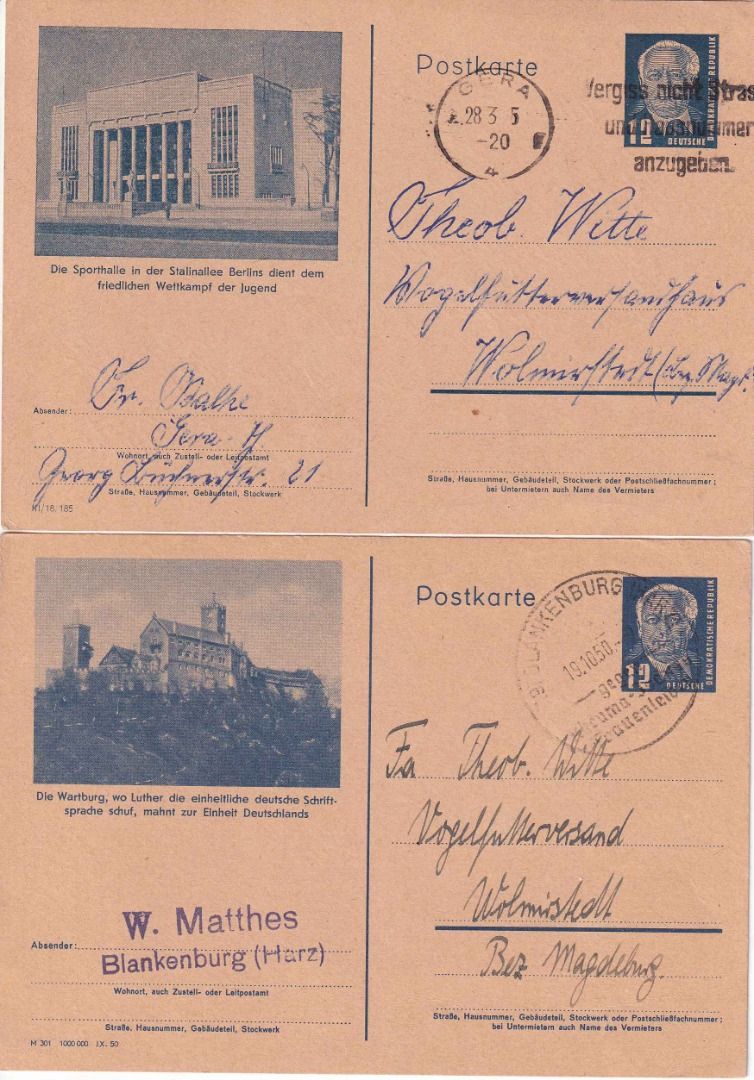 Postkarte
GERA
28 3 5
-20
4
Vergiss nicht Stras
und Hausnummer
anzugeben.
12
DEUTSCHE
DEMOKRATISCHE REPUBLIK
Die Sporthalle in der Stalinallee Berlins dient dem
friedlichen Wettkampf der Jugend
Theob. Witte
Vogelfutterversandhaus
Wolmirstedt (Bez. Magd.
Absender: Fr.
Gera
Wohnort, auch Zustell- oder Leitpostamt
Georg Büchnerstr. 21
Straße, Hausnummer, Gebäudeteil, Stockwerk
Straße, Hausnummer, Gebäudeteil, Stockwerk oder Postschließfachnummer;
bei Untermietern auch Name des Vermieters
III/18. 185
Postkarte
BLANKENBURG
19.10.50.
gegen
Rheuma
Frauenleid
12
DEUTSCHE
DEMOKRATISCHE REPUBLIK
Die Wartburg, wo Luther die einheitliche deutsche Schrift-
sprache schuf, mahnt zur Einheit Deutschlands
Fa Theob. Witte
Vogelfutterversand
Wolmirstedt
Bez Magdeburg.
W. Matthes
Absender:
Blankenburg (Harz)
Wohnort, auch Zustell- oder Leitpostamt
Straße, Hausnummer, Gebäudeteil, Stockwerk
Straße, Hausnummer, Gebäudeteil, Stockwerk oder Postschließfachnummer;
bei Untermietern auch Name des Vermieters
M 301 1000000 IX. 50